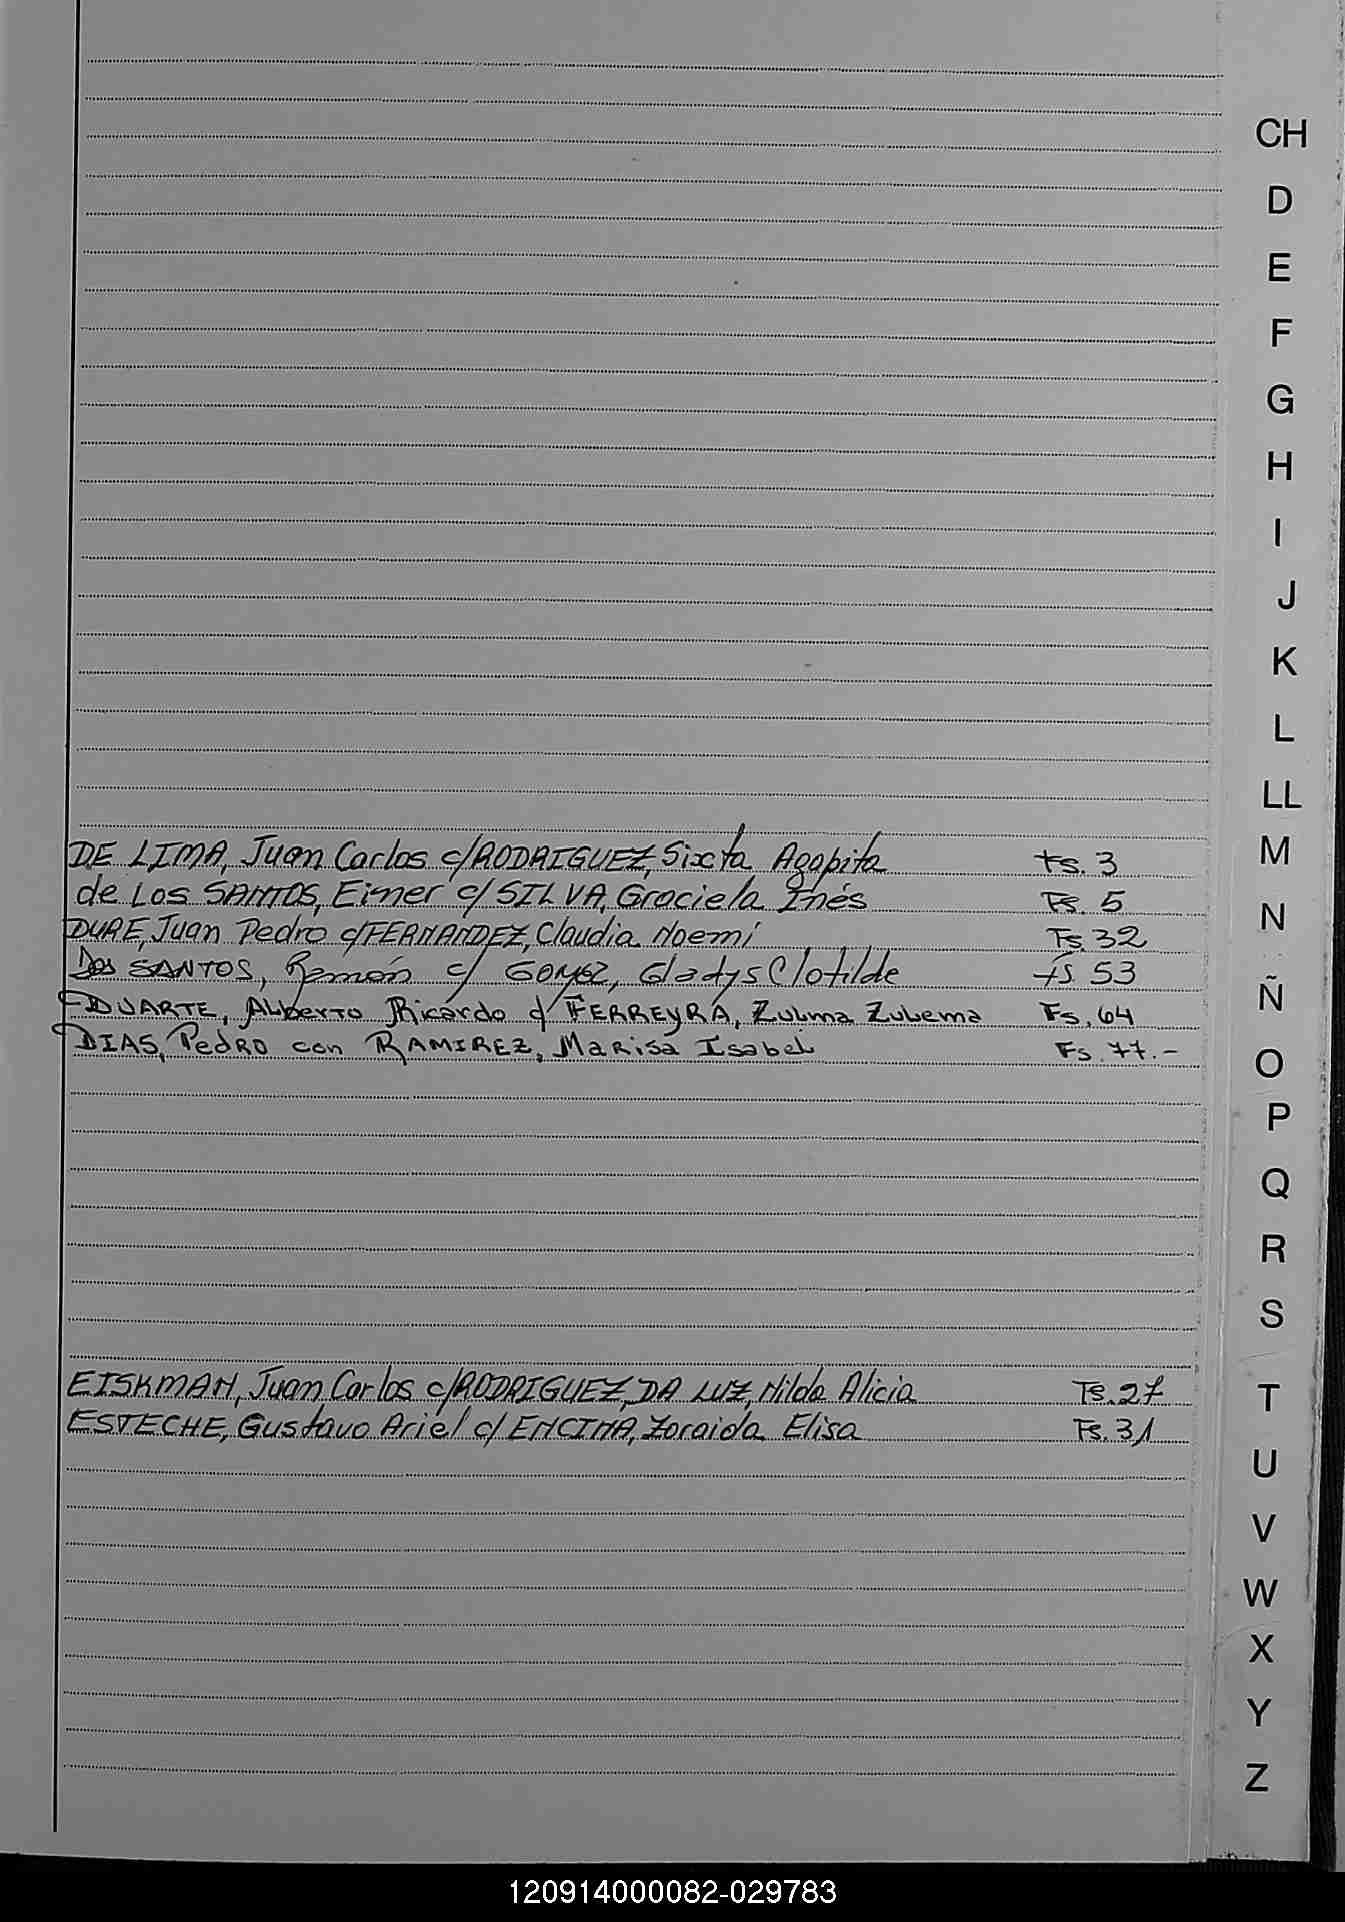 CH
D
E
F
G
H
I
J
K
L
LL
DE LIMA, Juan Carlos c/RODRIGUEZ, Sixta Agapita Fs. 3
M
de Los SANTOS, Eimer c/ SILVA, Graciela Inés Fs. 5
N
DURE, Juan Pedro c/FERNANDEZ, Claudia Noemi Fs. 32
Dos SANTOS, Ramón c/ GOMEZ, Gladys Clotilde fs. 53
Ñ
DUARTE, Alberto Ricardo c/ FERREYRA, Zulma Zulema Fs. 64
DIAS, Pedro con RAMIREZ, Marisa Isabel Fs. 77.-
O
P
Q
R
S
EISKMAN, Juan Carlos c/RODRIGUEZ, DA LUZ, Nilda Alicia Fs. 27
T
ESTECHE, Gustavo Ariel c/ ENCINA, Zoraida Elisa Fs. 31
U
V
W
X
Y
Z
120914000082-029783